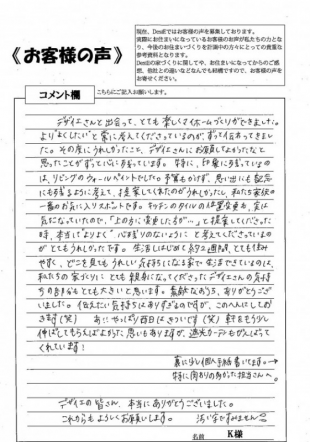 《お客様の声》
現在、DesiEではお客様の声を募集しております。
実際にお住まいになっているお客様のお声が私たちの力とな
り、今後のお住まいづくりを計画中の方々にとっての貴重な
参考資料となります。
DesiEの家づくりに関してや、お住まいになってからのご感
想、他社との違いなどなんでも結構ですので、お客様の声を
お寄せください。
コメント欄
こちらにご記入お願いします。
デザイエさんと出会って、とても楽しくマイホームづくりができました。
"よりよくしたい"と常に考えてくださっているのが、ずっと伝わってきまし
た。その度にうれしかったこと、デザイエさんにお願いしてよかったなと
思ったことがずっと心に残っています。特に、印象に残っているの
は、リビングのウォールペイントでした。予算もかけず、思い出にも記念
にも残るように考えて、提案してくれたのがうれしかったし、私たち家族の
一番のお気に入りスポットです。キッチンのタイルの位置変更も、実は
気になっていたので、"上の方に変更したらが…"と提案してくださった
時、本当に"よりよく""心残りのないように"と考えてくださっているの
がとてもうれしかったです。生活しはじめて約2週間、とても住み
やすく、どこを見てもうれしい気持ちになる家で生活できているのは、
私たちの家づくりにとても親身になってくださったデザイエさんの気持
ちのおかげもとても大きいと思います。素敵なおうち、ありがとうござ
いました。伝えたい気持ちはありすぎるのですが、このへんにしてお
きます(笑) あとやっぱり西日はきついです(笑) 軒をもう少し
伸ばしてもらえばよかった思いもありますが、遮光カーテンもがんばって
くれています!
裏に少し個人手紙書いてます。→
特に関わりの多かった担当さんへ。
デザイエの皆さん、本当にありがとうございました。
これからもよろしくお願いします。
汚い字ですみません
名前 K様